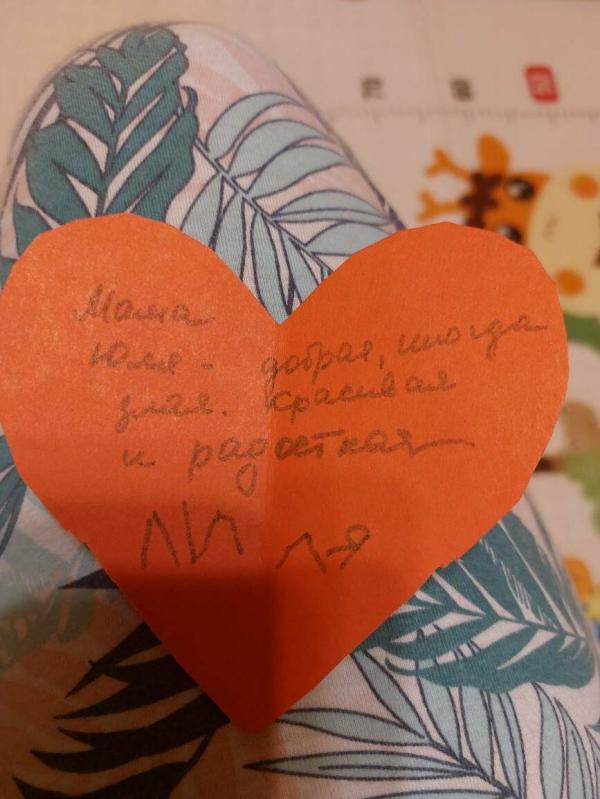 Мама
Юля - добрая, иногда
злая. Красивая
и радостная
ЛИЛЯ